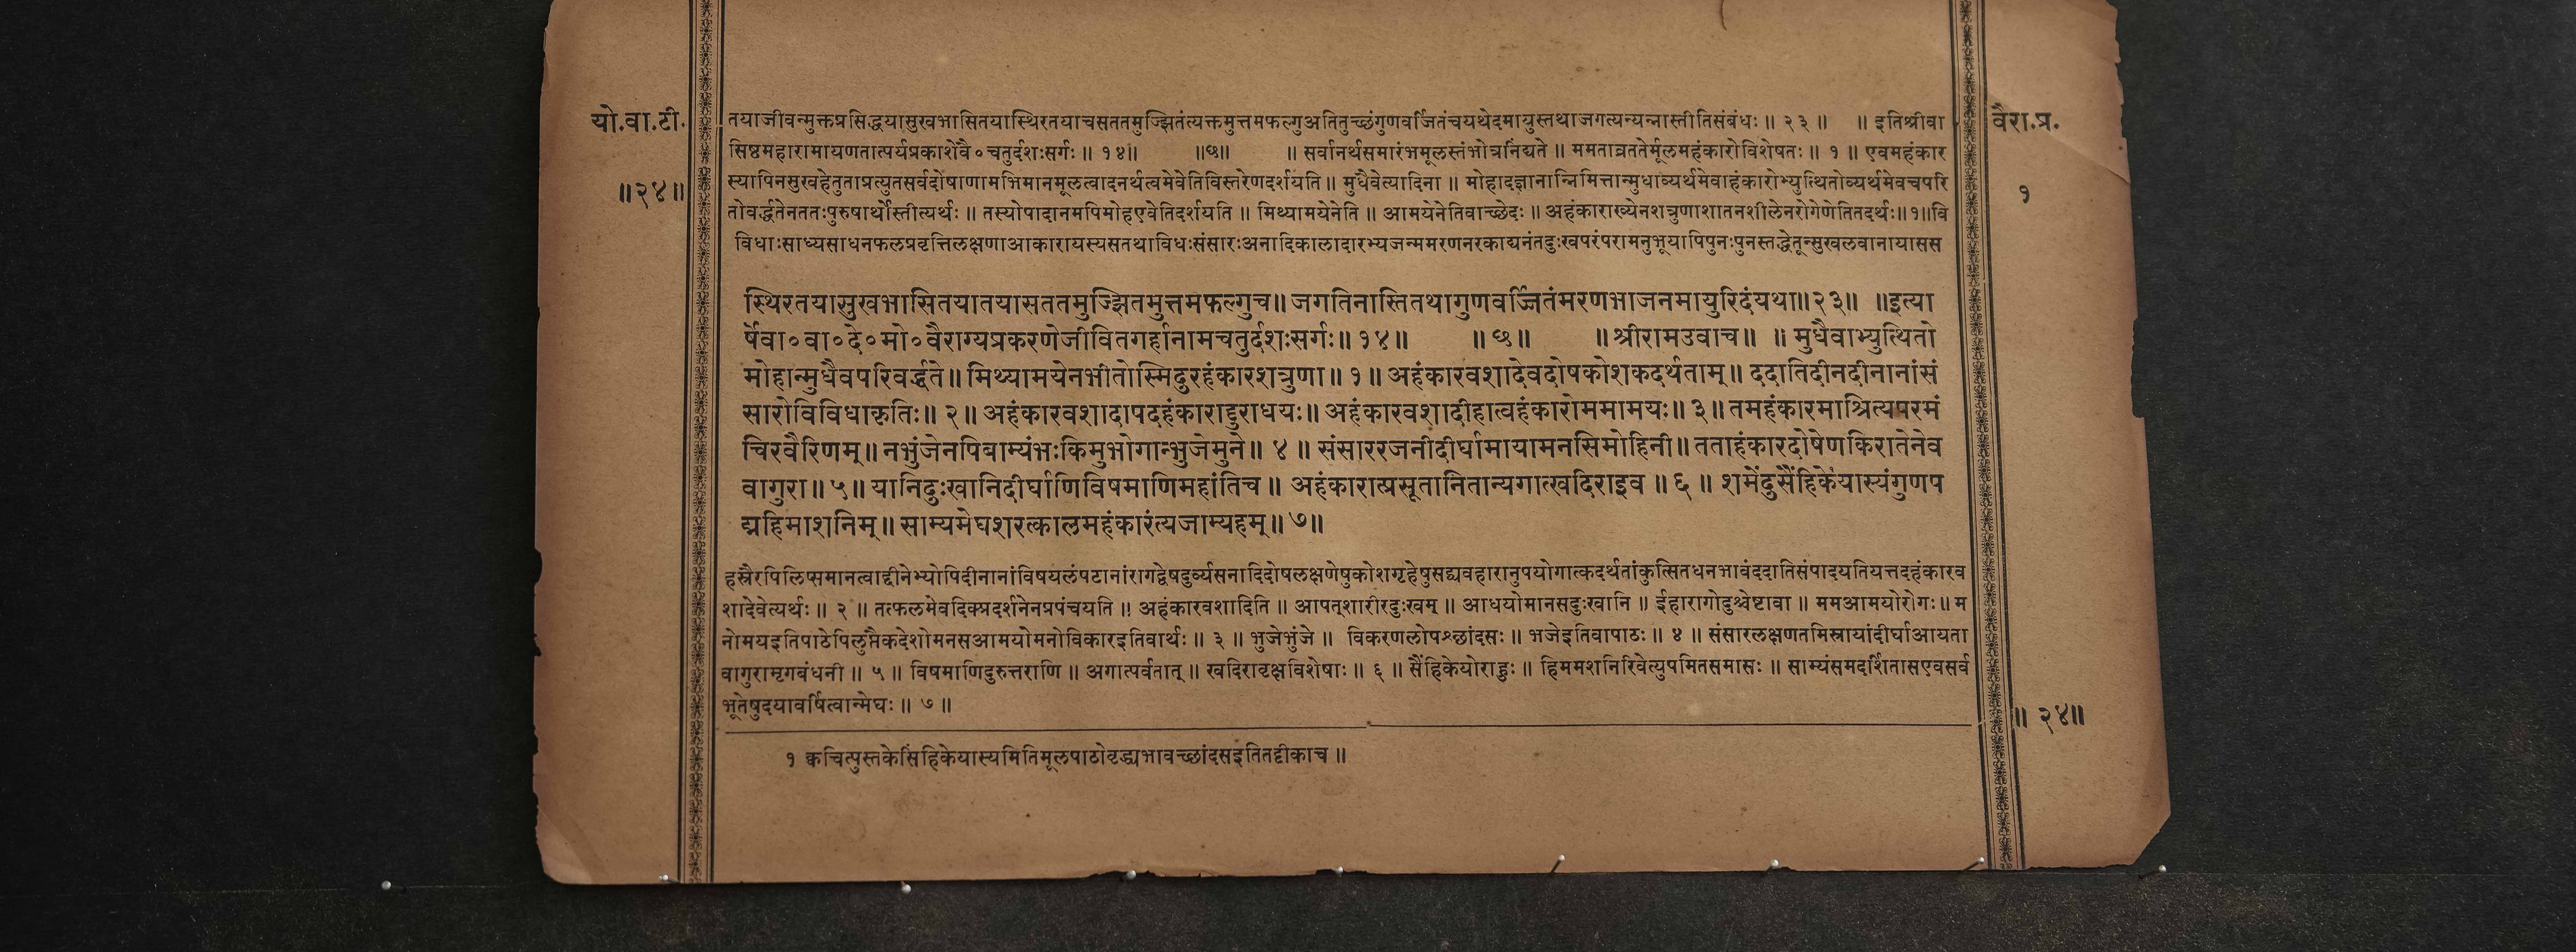 यो.वा.टी.
॥२४॥
तयाजीवन्मुक्तप्रसिद्धयासुखभासितयास्थिरतयाचसततमुज्झितंत्यक्तमुत्तमफल्गुअतितुच्छंगुणवर्जितंचयथेदमायुस्तथाजगत्यन्यन्नास्तीतिसंबंधः ॥ २३ ॥ ॥ इतिश्रीवा
सिष्ठमहारामायणतात्पर्यप्रकाशेवै०चतुर्दशःसर्गः ॥ १४॥ ॥छ॥ ॥ सर्वानर्थसमारंभमूलस्तंभोत्रनिंद्यते ॥ ममताव्रततेर्मूलमहंकारोविशेषतः ॥ १ ॥ एवमहंकार
स्यापिनसुखहेतुताप्रत्युतसर्वदोषाणामभिमानमूलत्वादनर्थत्वमेवेतिविस्तरेणदर्शयति ॥ मुधैवेत्यादिना ॥ मोहादज्ञानान्निमित्तान्मुधाव्यर्थमेवाहंकारोभ्युत्थितोव्यर्थमेवचपरि
तोवर्द्धतेनततःपुरुषार्थोस्तीत्यर्थः ॥ तस्योपादानमपिमोहएवेतिदर्शयति ॥ मिथ्यामयेनेति ॥ आमयेनेतिवाच्छेदः ॥ अहंकाराख्येनशत्रुणाशातनशीलेनरोगेणेतितदर्थः॥१॥वि
विधाःसाध्यसाधनफलप्रवृत्तिलक्षणाआकारायस्यसतथाविधःसंसारःअनादिकालादारभ्यजन्ममरणनरकाद्यनंतदुःखपरंपरामनुभूयापिपुनःपुनस्तद्धेतून्सुखलवानायासस
स्थिरतयासुखभासितयातयासततमुज्झितमुत्तमफल्गुच॥ जगतिनास्तितथागुणवर्ज्जितंमरणभाजनमायुरिदंयथा॥२३॥ ॥इत्या
र्षेवा०वा०दे०मो०वैराग्यप्रकरणेजीवितगर्हानामचतुर्दशःसर्गः॥ १४॥ ॥ छ॥ ॥ श्रीरामउवाच॥ ॥ मुधैवाभ्युत्थितो
मोहान्मुधैवपरिवर्द्धते॥ मिथ्यामयेनभीतोस्मिदुरहंकारशत्रुणा॥ १॥ अहंकारवशादेवदोषकोशकदर्थताम्॥ ददातिदीनदीनानांसं
सारोविविधाकृतिः॥ २॥ अहंकारवशादापदहंकाराद्दुराधयः॥ अहंकारवशादीहात्वहंकारोममामयः॥ ३॥ तमहंकारमाश्रित्यपरमं
चिरवैरिणम्॥ नभुंजेनपिबाम्यंभःकिमुभोगान्भुजेमुने॥ ४॥ संसाररजनीदीर्घामायामनसिमोहिनी॥ तताहंकारदोषेणकिरातेनेव
वागुरा॥ ५॥ यानिदुःखानिदीर्घाणिविषमाणिमहांतिच॥ अहंकारात्प्रसूतानितान्यगात्खदिराइव ॥ ६॥ शमेंदुसैंहिकेयास्यंगुणप
द्महिमाशनिम्॥ साम्यमेघशरत्कालमहंकारंत्यजाम्यहम्॥ ७॥
हस्रैरपिलिप्समानत्वाद्दीनेभ्योपिदीनानांविषयलंपटानांरागद्वेषदुर्व्यसनादिदोषलक्षणेषुकोशगृहेषुसद्व्यवहारानुपयोगात्कदर्थतांकुत्सितधनभावंददातिसंपादयतियत्तदहंकारव
शादेवेत्यर्थः ॥ २ ॥ तत्फलमेवदिक्प्रदर्शनेनप्रपंचयति ॥ अहंकारवशादिति ॥ आपत्शारीरदुःखम् ॥ आधयोमानसदुःखानि ॥ ईहारागोदुश्चेष्टावा ॥ ममआमयोरोगः॥ म
नोमयइतिपाठेपिलुप्तैकदेशोमनसआमयोमनोविकारइतिवार्थः ॥ ३ ॥ भुजेभुंजे ॥ विकरणलोपश्छांदसः ॥ भजेइतिवापाठः ॥ ४ ॥ संसारलक्षणतमिस्रायांदीर्घाआयता
वागुरामृगबंधनी ॥ ५ ॥ विषमाणिदुरुत्तराणि ॥ अगात्पर्वतात् ॥ खदिरावृक्षविशेषाः ॥ ६ ॥ सैंहिकेयोराहुः ॥ हिममशनिरिवेत्युपमितसमासः ॥ साम्यंसमदर्शितासएवसर्व
भूतेषुदयावर्षित्वान्मेघः ॥ ७ ॥
१ क्वचित्पुस्तकेसिंहिकेयास्यमितिमूलपाठोवृद्ध्यभावच्छांदसइतितट्टीकाच ॥
वैरा.प्र.
१
॥ २४॥